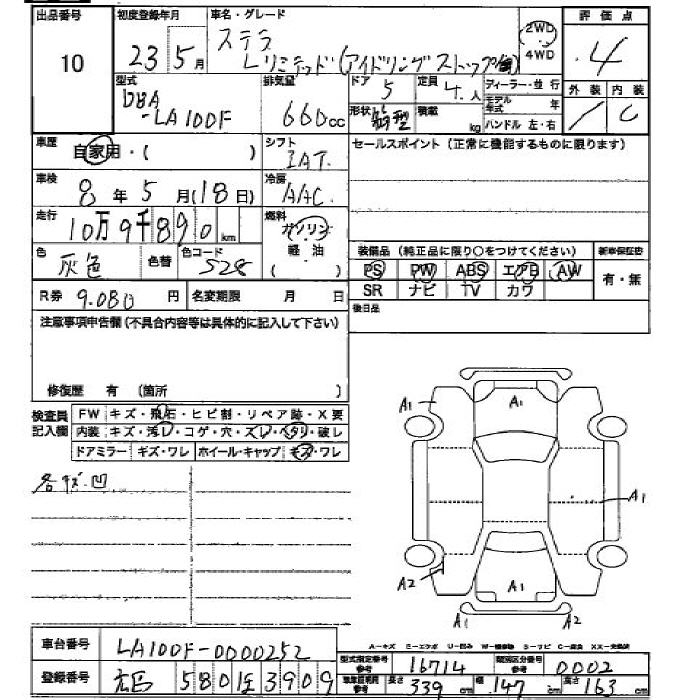 出品番号 初度登録年月 車名・グレード 2WD 4WD 評価点
10 23 5月 ステラ Lリミテッド(アイドリングストップ 4
型式 排気量 ドア 5 定員 4人 ディーラー・並行 外装 内装
DBA-LA100F 660cc 形状 箱型 積載 kg モデル年式 年 ハンドル 左・右 C
車歴 自家用・( ) シフト IAT セールスポイント(正常に機能するものに限ります)
車検 8年5月(18日) 冷房 AAC
走行 10万9千890km 燃料 ガソリン 軽油 ( )
色 灰色 色替 色コード 528 装備品(純正品に限り○をつけてください) 新車保証書
PS PW ABS エアB AW 有・無
R券 9.080円 名変期限 月 日 SR ナビ TV カワ
注意事項申告欄(不具合内容等は具体的に記入して下さい) 後日品
修復歴 有 (箇所 )
検査員記入欄 FW キズ・飛石・ヒビ割・リペア跡・X要
内装 キズ・汚レ・コゲ・穴・スレ・ヘタリ・破レ
ドアミラー キズ・ワレ ホイール・キャップ キズ・ワレ
各キズ.凹
A1 A1
A1
A2 A1
A1 A2
A-キズ E-エクボ U-凹み
車台番号 LA100F-0000252
型式指定番号 参考 16714 類別区分番号 参考 0002
登録番号 広島 580 は 3909
長さ 339cm 幅 147cm 高さ 163cm